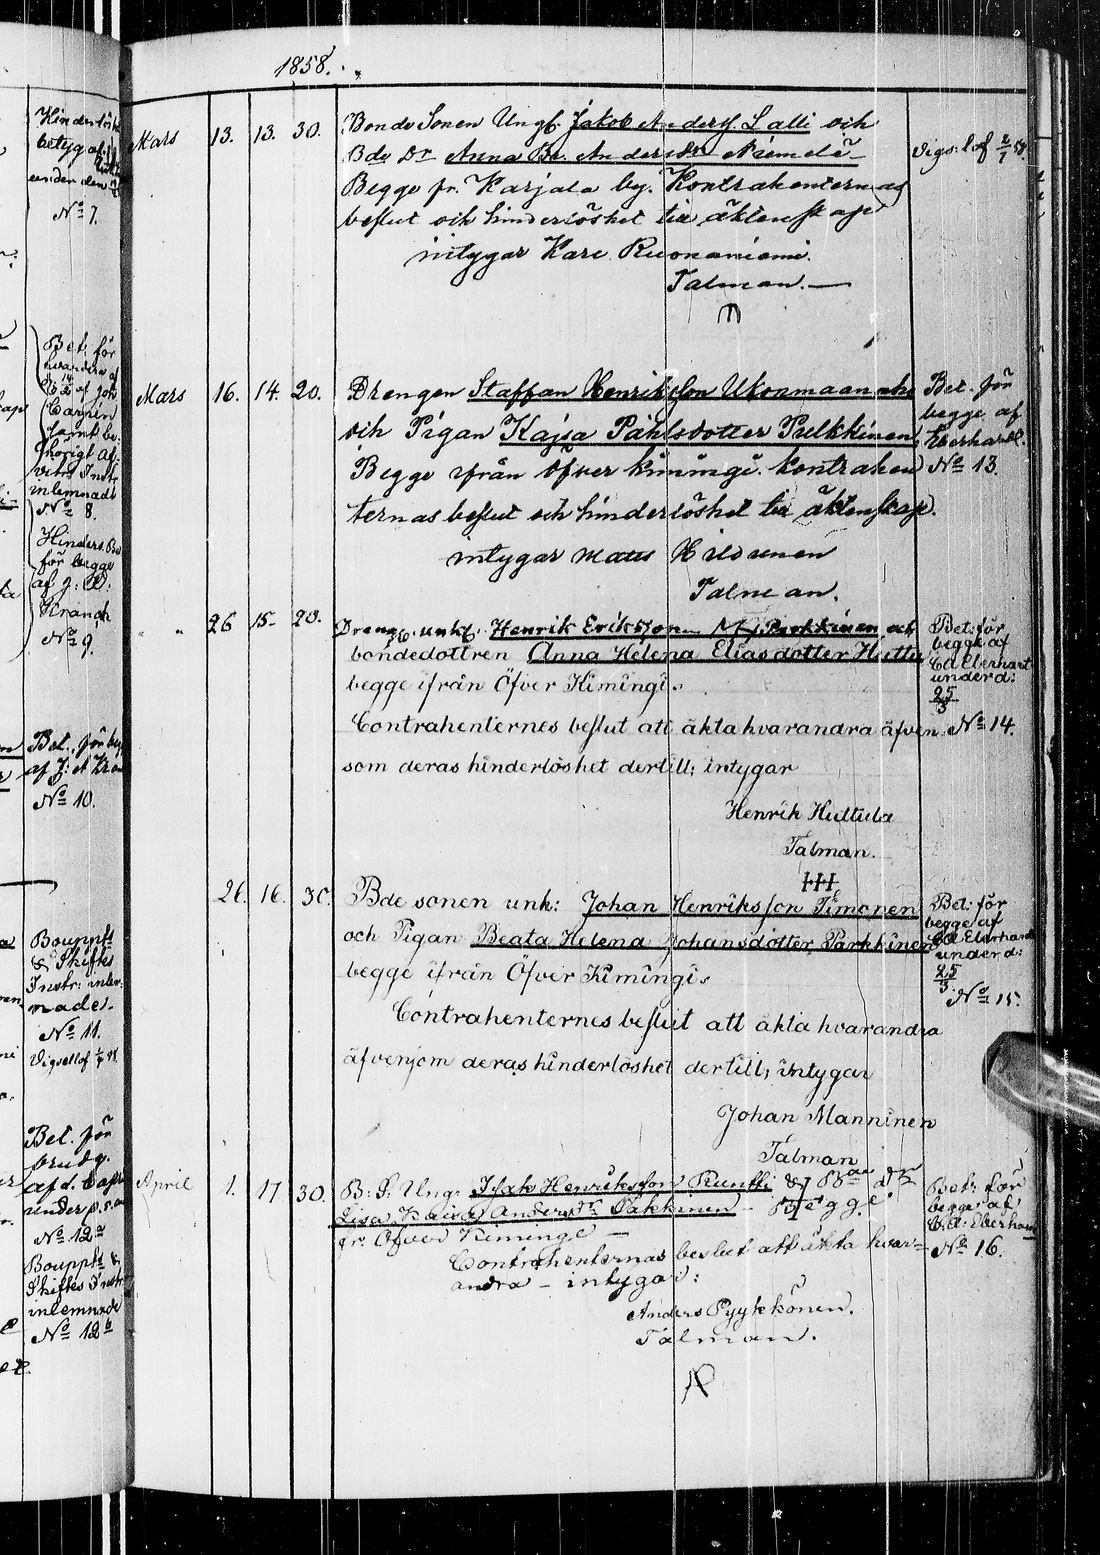 1858.
Mars 13. 13. 30. Bonde Sonen Ungk. Jakob Anderss. Lalli och
Bde Dr Anna Br. Andersdr Niemelä
Begge fr. Karjala by. Kontrahenternas
beslut och hinderlöshet till äktenskap
intygar Karl Ruonaniemi.
Talman.
Vigs: lof 2/7 58.
Mars 16. 14. 20. Drengen Staffan Henriksson Ukonmaanaho
och Pigan Kajsa Påhlsdotter Pulkkinen
Begge ifrån Öfver kiminge. kontrahen
ternas beslut och hinderlöshet till äktenskap.
intygar Matts Hildunen
Talman.
Bet. för
begge af
Eberhardt.
No 13
" " 26 15. 20. Dreng. unkf. Henrik Eriksson Parkkinen och
bondedottren Anna Helena Eliasdotter Huttu
begge ifrån Öfver Kimingi.
Contrahenternes beslut att äkta hvarandra äfven
som deras hinderlöshet dertill; intygar
Henrik Huttula
Talman.
Bet: för
begge af
Cd Eberhart
under d:
25/3
No 14.
26. 16. 30. Bde sonen unk: Johan Henriksson Timonen
och Pigan Beata Helena Johansdotter Parkkinen
begge ifrån Öfver Kimingi.
Contrahenternes beslut att äkta hvarandra
äfvensom deras hinderlöshet dertill; intygar
Johan Manninen
Talman
Bet: för
begge af
Cd Eberhardt
under d:
25/3.
No 15.
April 1. 17 30. B: S: Ung: Isak Henriksson Runtti & Bde dr
Lisa Kaisa Andersdr Pakkinen - Begge
fr. Öfver Kiminge
Contrahenternas beslut att äkta hvar=
andra - intygar:
Anders Pyykkönen.
Talman.
Bet: för
begge af
C. d. Eberhardt
No 16.
Hinderlösh
betyg af
under den
No 7.
Bet: för
hvardera af
Carpen
samt be-
hörigt Af-
vittr. Instr
inlemnadt
No 8.
Hinders. Bet
för begge
af J: A:
Kranck
No 9.
Bet. för beg
af J: A Kran
No 10.
Bouppts
& Skiftes
Instr: inlem-
nade.
No 11.
Vigsellof
Bet. för
brudg.
af d. Carpen
under
No 12a
Bouppts &
Skiftes Instr
inlemnade
No 12b